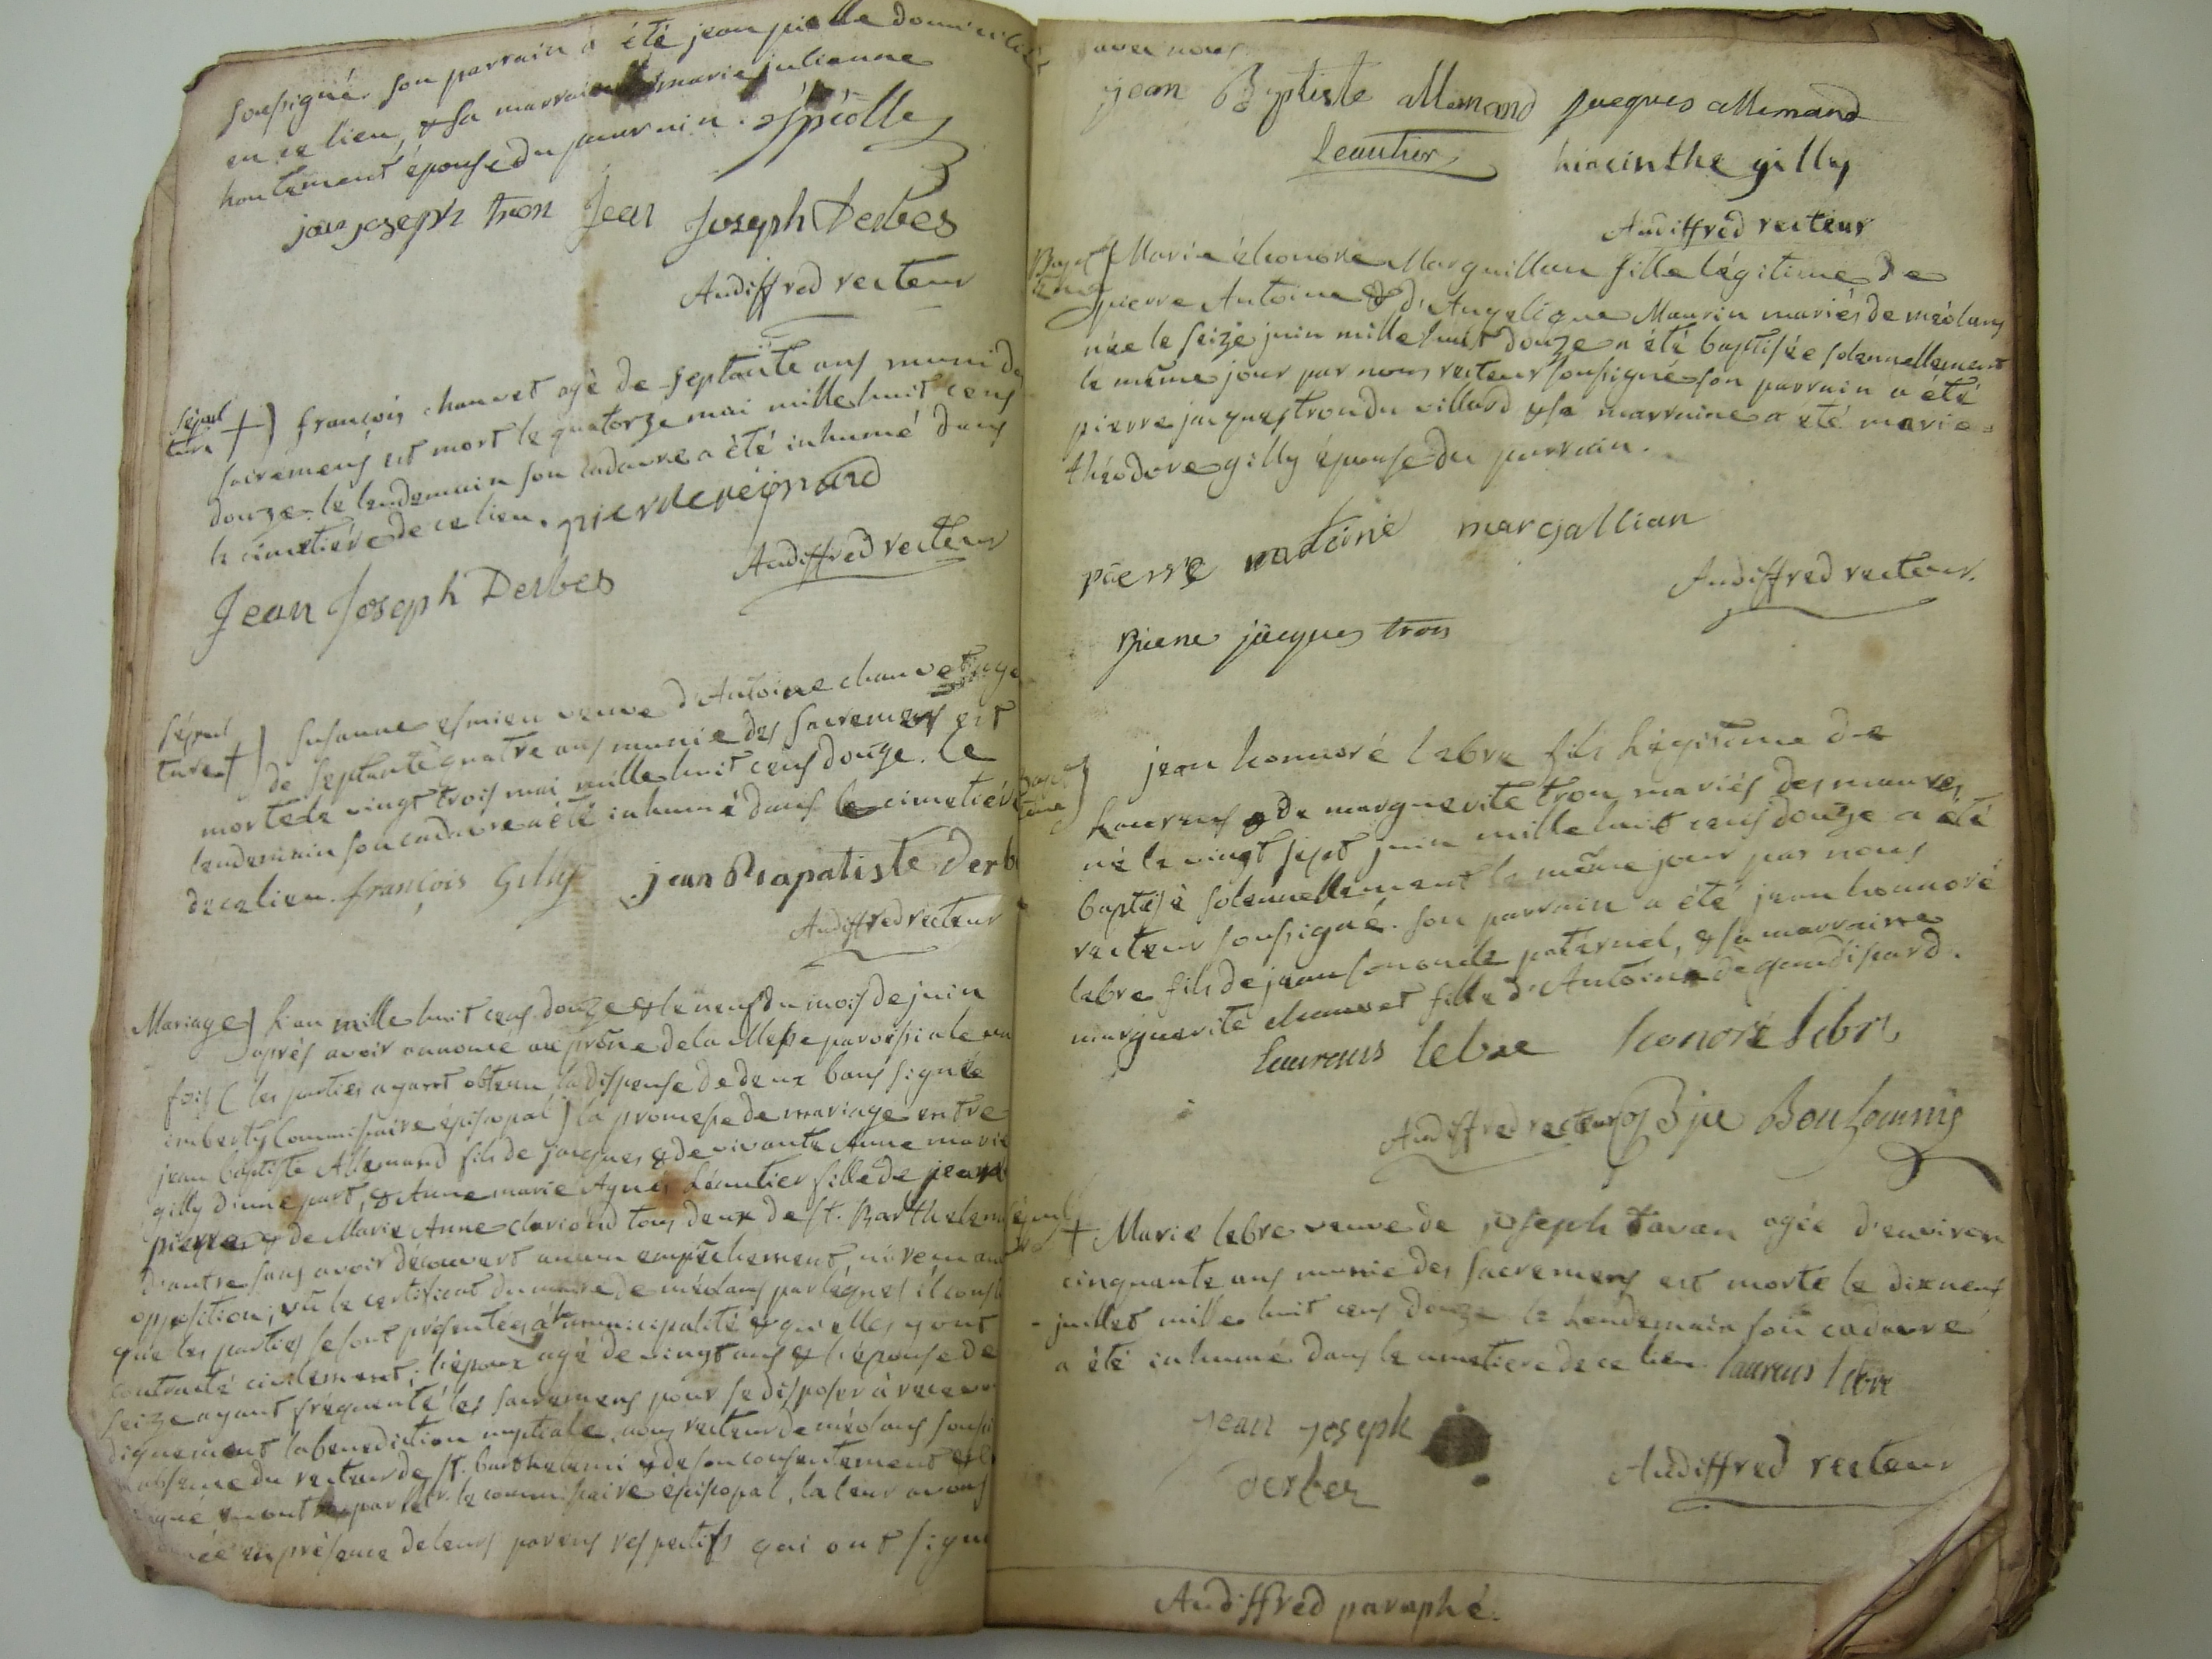 soussigné. son parrain a été jean piolle domicilié
en ce lieu, & sa marraine marie julienne
hontement épouse du parrain. Jpiolle
jan joseph tron Jean Joseph Derbes
Audiffred recteur
Sépul
ture +} françois chauvet agé de septante ans muni des
sacremens est mort le quatorze mai mille huit cens
douze. le lendemain son cadavre a été inhumé dans
le cimetière de ce lieu. pierre reignard
Jean Joseph Derbes Audiffred recteur
Sépul
ture +} susanne esmieu veuve d'Antoine chauvet agé
de septante quatre ans munie des sacremens est
morte le vingt trois mai mille huit cens douze. le
lendemain son cadavre a été inhumé dans le cimetière
de ce lieu. françois Gilly jean Bapatiste Derb
Audiffred recteur
Mariage} L'an mille huit cens douze & le neuf du mois de juin
après avoir annoncé au prône de la Messe paroissiale un
fois (les parties ayant obtenu la dispense de deux bans signée
imberty Commissaire épiscopal) la promesse de mariage entre
jean baptiste Allemand fils de jacques & de vivante Anne marie
gilly d'une part, & Anne marie Agnes Léautier fille de jean
pierre & de Marie Anne clariond tous deux de St. Barthelemi
d'autre sans avoir découvert aucun empêchement, ni reçu aucu
opposition; vû le certificat du maire de méolans par lequel il conste
que les parties se sont présentées à la municipalité & qu'elles y ont
contracté civilement; l'époux agé de vingt ans & l'épouse de
seize ayant fréquenté les sacremens pour se disposer à recevoir
dignement la benediction nuptiale, nous recteur de méolans soussi
absence du recteur de St. barthelemi & de son consentement &
par le commissaire épiscopal, la leur avons
en présence de leurs parens respectifs qui ont signé
avec nous
jean Baptiste allemand jacques allemand
Leautier hiacinthe gilly
Audiffred recteur
Bapt
tême } Marie éleonore Marguillan fille légitime de
pierre Antoine & d'Angelique Maurin mariés de méolans
née le seize juin mille huit douze a été baptisée solennellement
le même jour par nous recteur soussigné son parrain a été
pierre jacques tron du villard & sa marraine a été marie=
théodore gilly épouse du parrain.
pierre antoine margallian
Audiffred recteur.
piere jacques tron
Bapt
tême } jean honnoré lebre fils légitime de
Laurens & de marguerite tron mariés des maures
né le vingt sept juin mille huit cens douze a été
baptisé solennellement le même jour par nous
recteur soussigné. son parrain a été jean honnoré
lebre fils de jean son oncle paternel, & sa marraine
marguerite chauvet fille d'Antoine de gaudissard.
Laurens lebre honoré lebre
Audiffred recteur
Sépul
+ Marie lebre veuve de joseph tavan agée d'environ
cinquante ans munie des sacremens est morte le dixneuf
juillet mille huit cens douze le lendemain son cadavre
a été inhumé dans le cimetiere de ce lieu. laurens lebre
jean joseph
derbez Audiffred recteur
Audiffred paraphé.